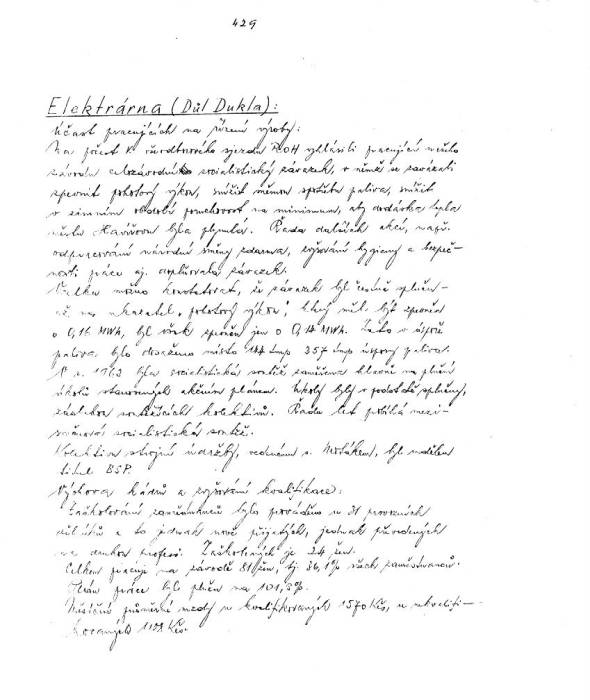 429
Elektrárna (Důl Dukla):
Účast pracujících na řízení výroby:
Na počest K sjezdu ROH vyhlásili pracující našeho
závodu celozávodní socialistický závazek, v němž se zavázali
zpevnit pohotový výkon, snížit měrnou spotřebu paliva, snížit
v zimním období poruchovost na minimum, aby dodávka tepla
městu Havířovu byla plynulá. Řada dalších akcí, např.
odpracování národní směny zdarma, zvyšování hygieny a bezpeč-
nosti práce aj. doplňovala závazek.
Celkem možno konstatovat, že závazek byl čestně splněn -
až na ukazatel "pohotový výkon", který měl být zpevněn
o 0,16 MWA, byl však zpevněn jen o 0,14 MWA. Zato v úspoře
paliva bylo dosaženo místo 144 tmp 357 tmp úspory paliva.
V r. 1963 byla socialistická soutěž zaměřena hlavně na plnění
úkolů stanovených akčním plánem. Úkoly byly v podstatě splněny,
zásluhou soutěžících kolektivů. Řadu let probíhá mezi-
směnová socialistická soutěž.
Kolektivu strojní údržby, vedenému s. , byl udělen
titul BSP.
Výchova kádrů a zvyšování kvalifikace:
Zaškolování zaměstnanců bylo prováděno u 31 provozních
dělníků a to jednak nově přijatých, jednak převedených
na druhou profesi. Zaškolených je 24 žen.
Celkem pracuje na závodě 81 žen, tj. 36,1% všech zaměstnanců.
Plán práce byl plněn na 101,3%.
Měsíční průměrné mzdy u kvalifikovaných 1570 Kčs, u nekvalifi-
kovaných Kčs.